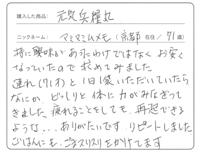 購入した商品： 元気兵糧丸
ニックネーム： マミマミムメモ（京都 在住 / 71歳）
特に興味があったわけではなく お安く
なっていたので 求めてみました
連れ（71才）と 1日1袋いただいていたら
なにか ピシリと 体に力がみなぎって
きました 疲れることをしても、再起できる
ような‥‥ ありがたいです リピートしました
ごはんにも ごまスリスリをかけてます